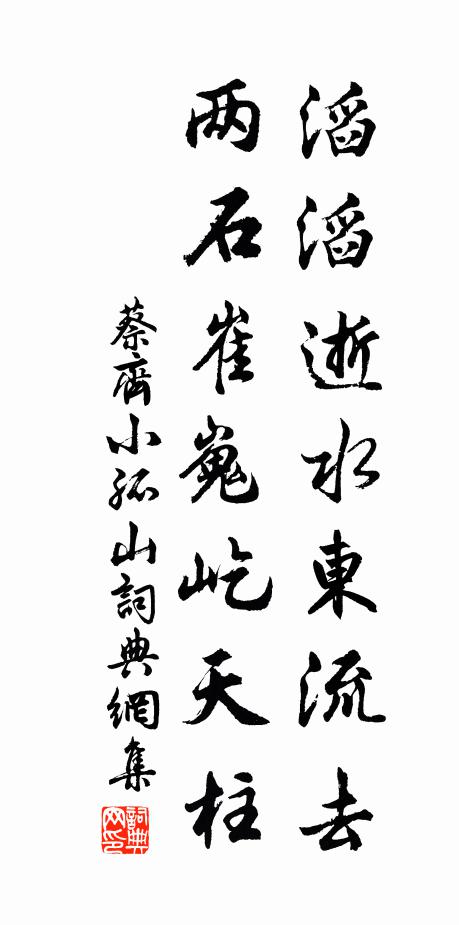 滔滔逝水東流去
两石崔嵬屹天柱
蔡齊小孤山詞典網集
詞典网印